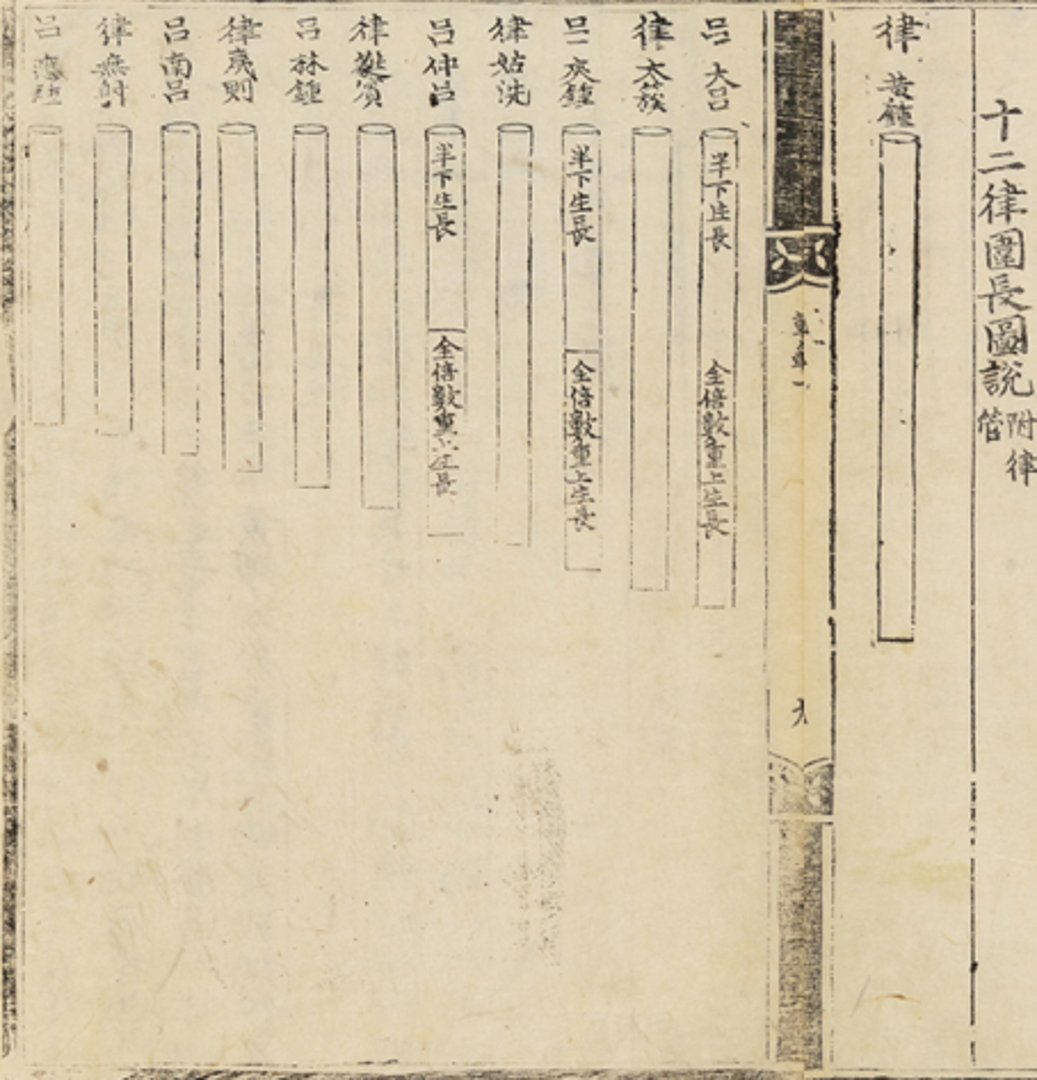 十二律圍長圖說 附律管
律 黃鍾
九
呂 大呂
半下生長
全倍數重上生長
律 太簇
呂 夾鍾
半下生長
全倍數重上生長
律 姑洗
呂 仲呂
半下生長
全倍數重上生長
律 蕤賓
呂 林鍾
律 夷則
呂 南呂
律 無射
呂 應鍾